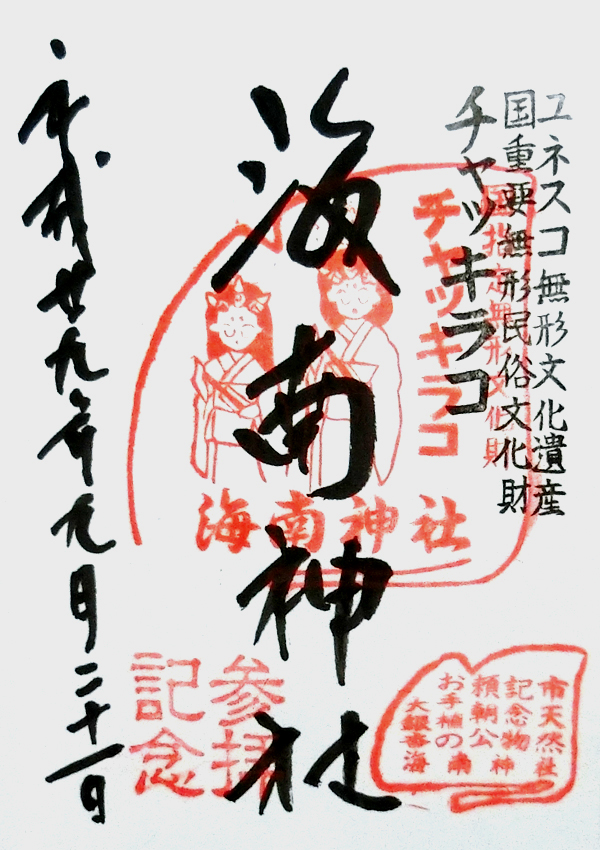 ユネスコ無形文化遺産
国重要無形民俗文化財
チャッキラコ
国指定無形文化財
チャッキラコ
海南神社
海南神社
参拝
記念
市天然
記念物
頼朝公
お手植の
大銀杏
海南神社
平成廿九年九月二十一日